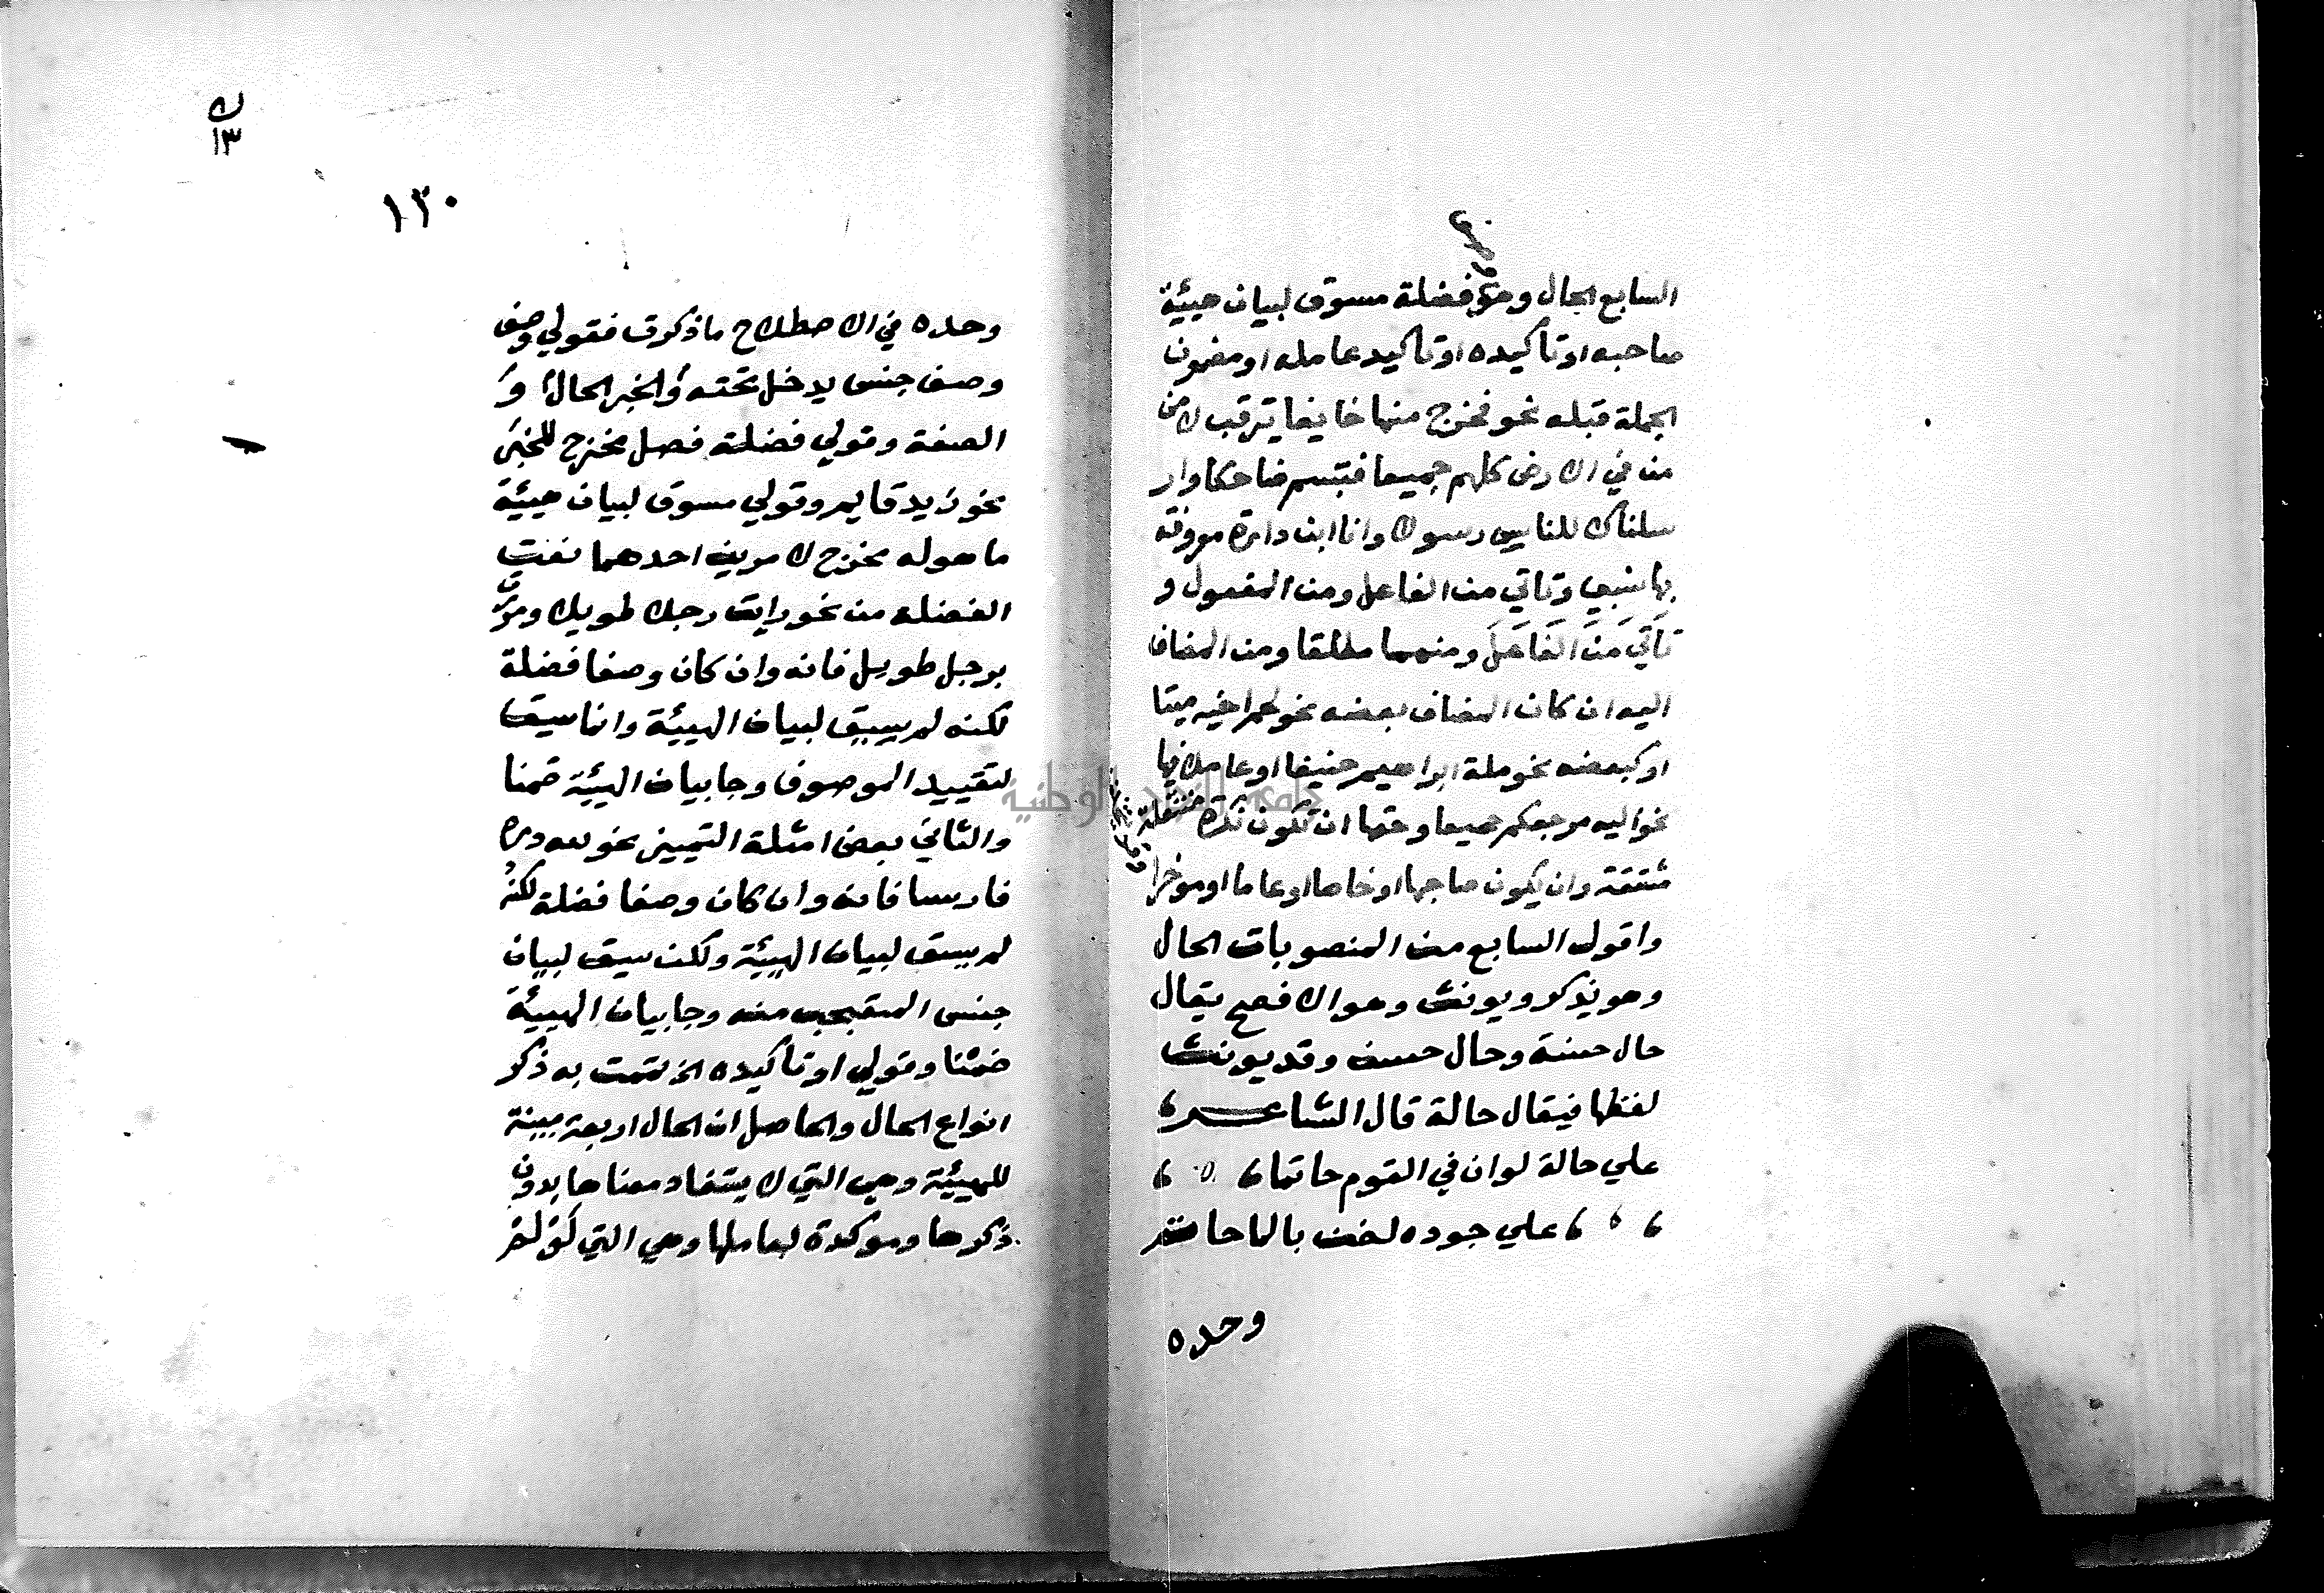 السابع الحال وهو فضلة مسوق لبيان هيئية
صاحبه او تاكيده او تاكيد عامله او مضمون
الجملة قبله نحو فخرج منها خايفا يترقب لامن
من في الارض كلهم جميعا فتبسم ضاحكا وار
سلناك للناس رسولا وانا ابن دارة معروفة
بها نسبي وتاتي من الفاعل ومن المفعول و
تاتي من الفاعل ومنهما مطلقا ومن المضاف
اليه ان كان المضاف بعضه نحو لحم اخيه ميتا
او كبعضه نحو ملة ابراهيم حنيفا او عاملا فيها
نحو اليه مرجعكم جميعا وحقها ان تكون نكرة منتقلة
مشتقة وان يكون صاحبها او خاصا او عاما او موخرا
واقول السابع من المنصوبات الحال
وهو يذكر ويونث وهو الافصح يقال
حال حسنة وحال حسن وقد يونث
لفظها فيقال حالة قال الشاعر
علي حالة لو ان في القوم حاتما
علي جوده لضن بالما حاتم
وحده
ك
١٣
١٣٠
وحده في الاصطلاح ما ذكرت فقولي وصف
وصف جنس يدخل تحته والخبر الحال و
الصفة وقولي فضلة فصل مخرج للخبر
نحو زيد قايم وقولي مسوق لبيان هيئية
ما هو له مخرج لامرين احدهما نعت
الفضلة من نحو رايت رجلا طويلا ومررت
برجل طويل فانه وان كان وصفا فضلة
لكنه لم يسق لبيان الهيئة وانما سيق
لتقييد الموصوف وجا بيان الهيئة ضمنا
والثاني بعض امثلة التمييز نحو لله دره
فارسا فانه وان كان وصفا فضلة لكنه
لم يسق لبيان الهيئة ولكن سيق لبيان
جنس المتعجب منه وجا بيان الهيئة
ضمنا وقولي او تاكيده الخ تممت به ذكر
انواع الحال والحاصل ان الحال اربعة مبينة
للهيئة وهي التي لا يستفاد معناها بدون
ذكرها وموكدة لعاملها وهي التي لو لم